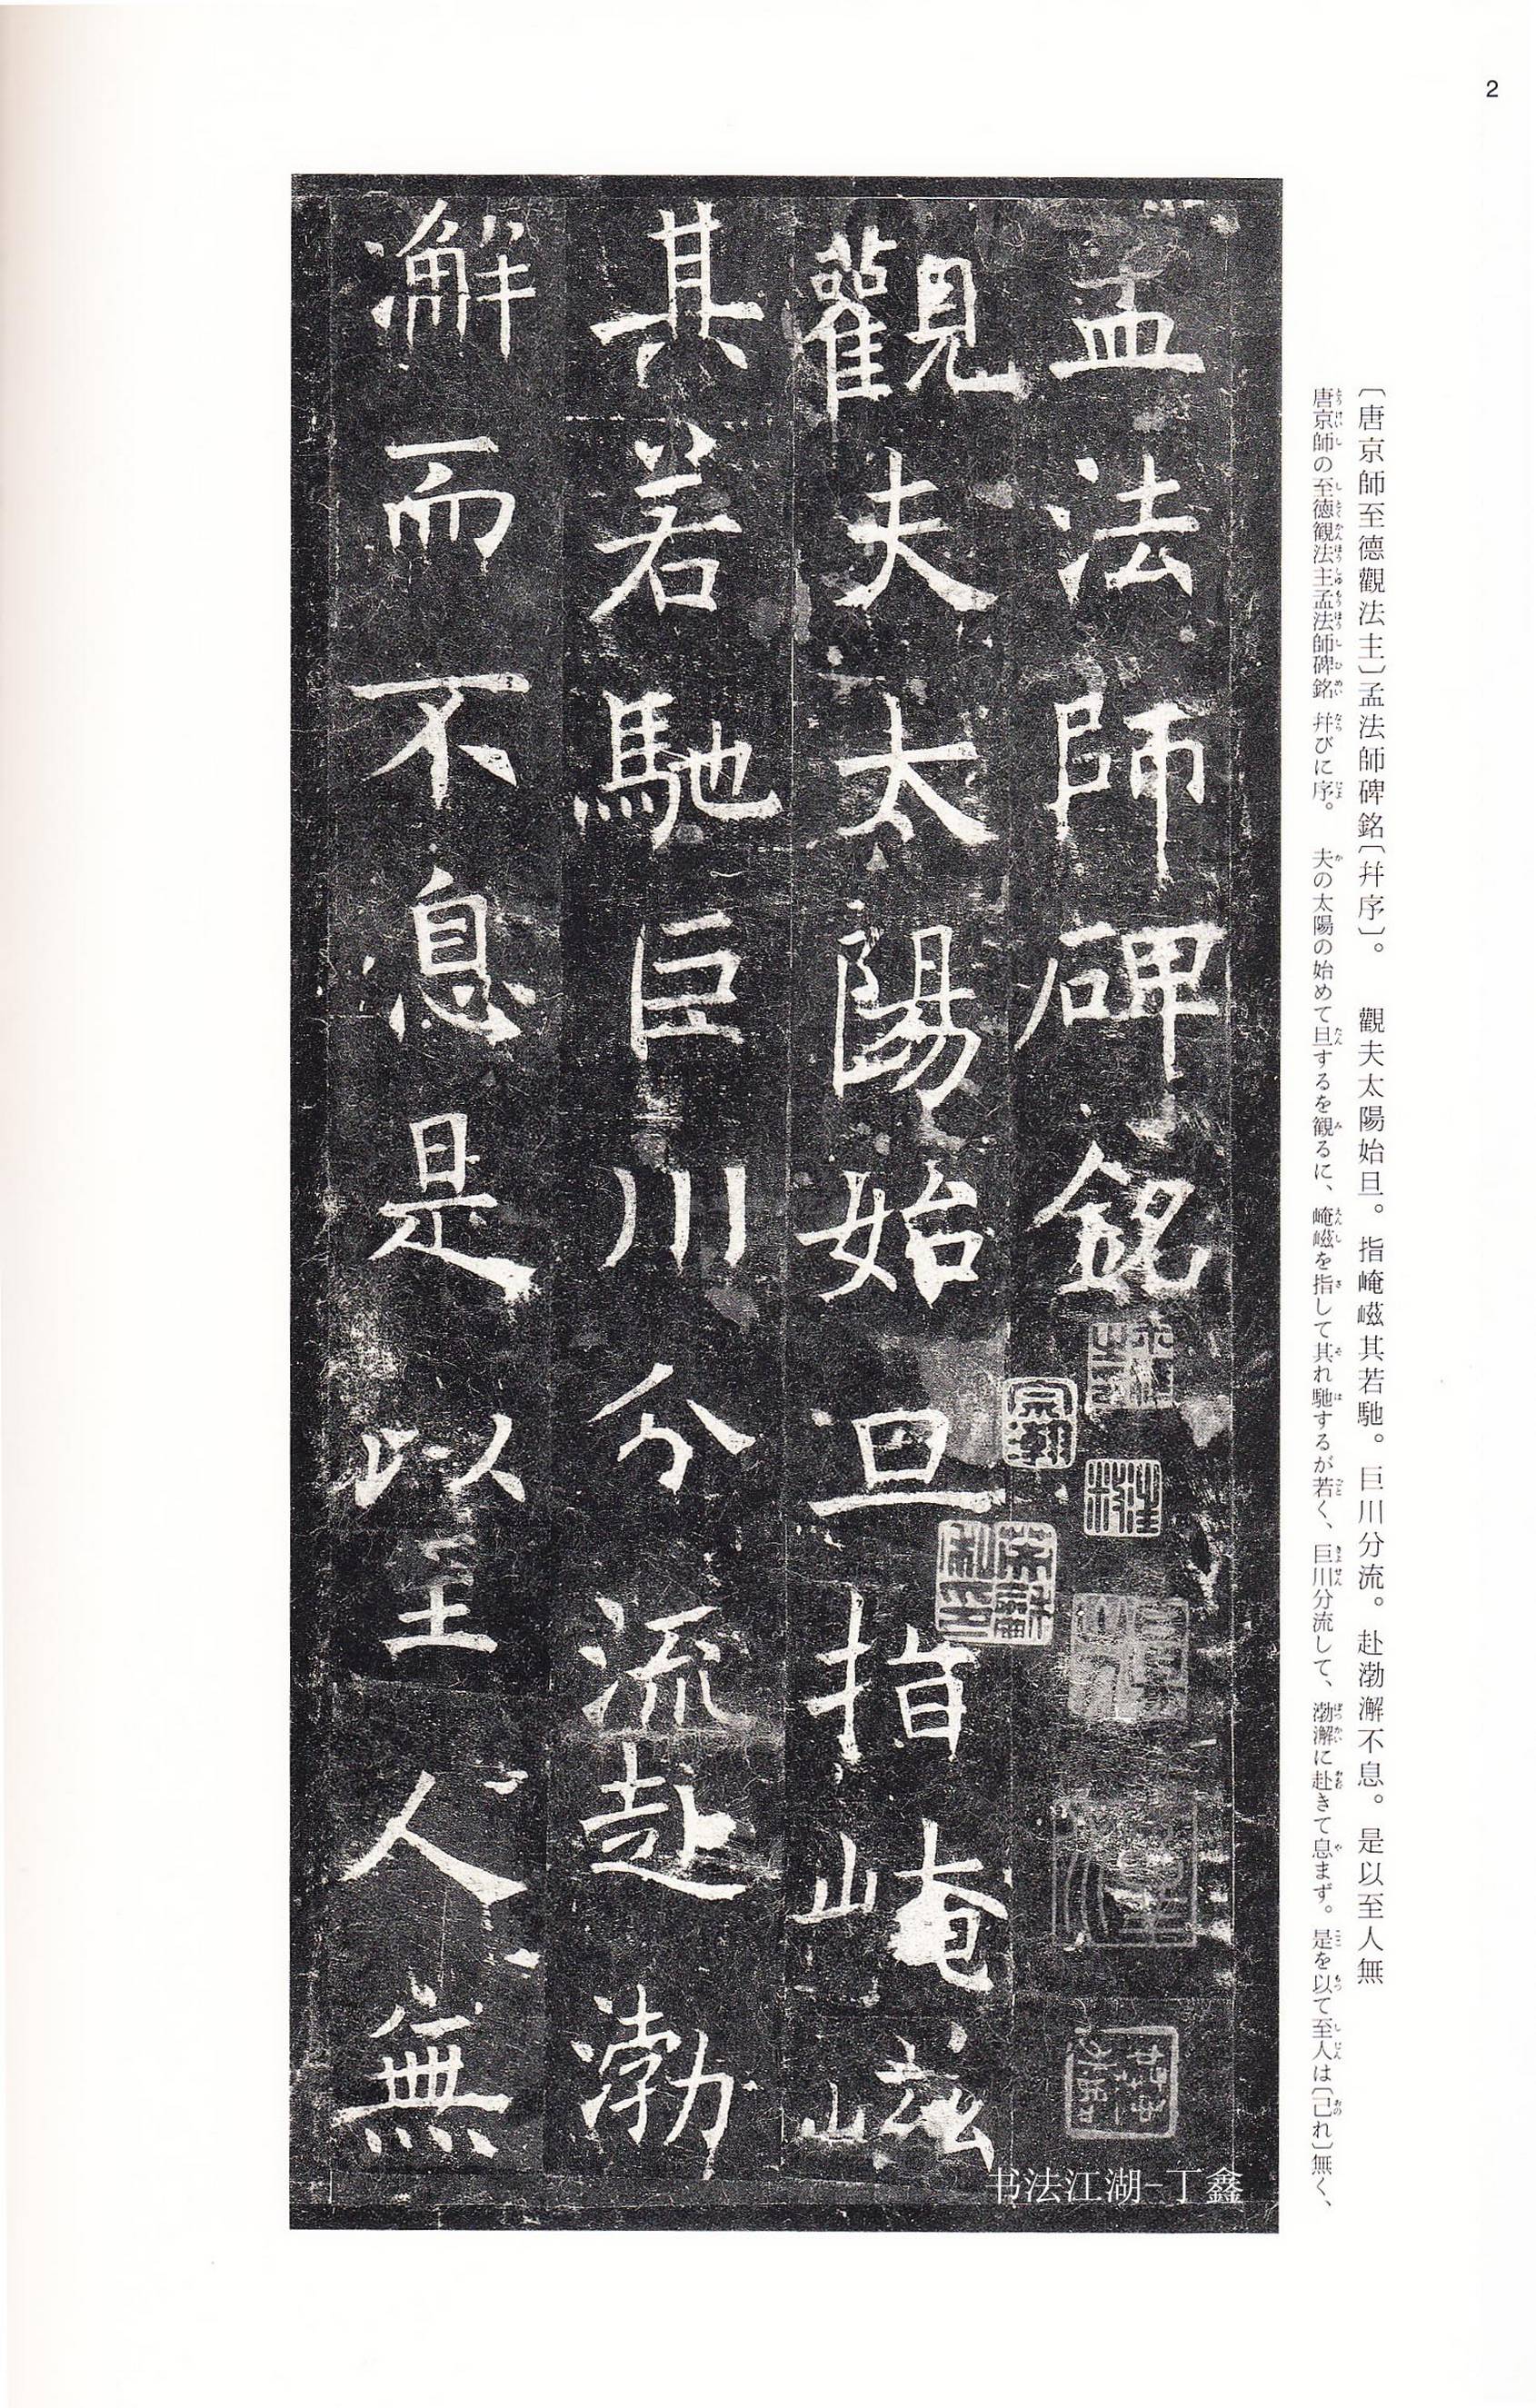 2
〔唐京師至德觀法主〕孟法師碑銘〔幷序〕。　觀夫太陽始旦。指崦嵫其若馳。巨川分流。赴渤澥不息。是以至人無
唐京師の至徳観法主孟法師碑銘 幷びに序。　夫の太陽の始めて旦するを観るに、崦嵫を指して其れ馳するが若く、巨川分流して、渤澥に赴きて息まず。是を以て至人は〔己れ〕無く、
孟法師碑銘
觀夫太陽始旦指崦嵫
其若馳巨川分流赴渤
澥而不息是以至人無
书法江湖-丁鑫